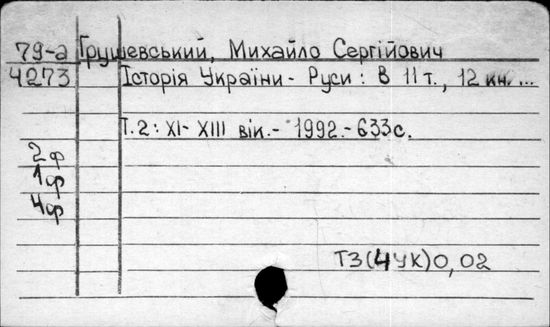 79-а Грушевський, Михайло Сергійович
4273 Історія України-Руси: В 11 т., 12 кн. ...
Т.2: XI-XIII вік.- 1992.-633с.
2ф
1ф
4ф
Т3(4УК)0,02